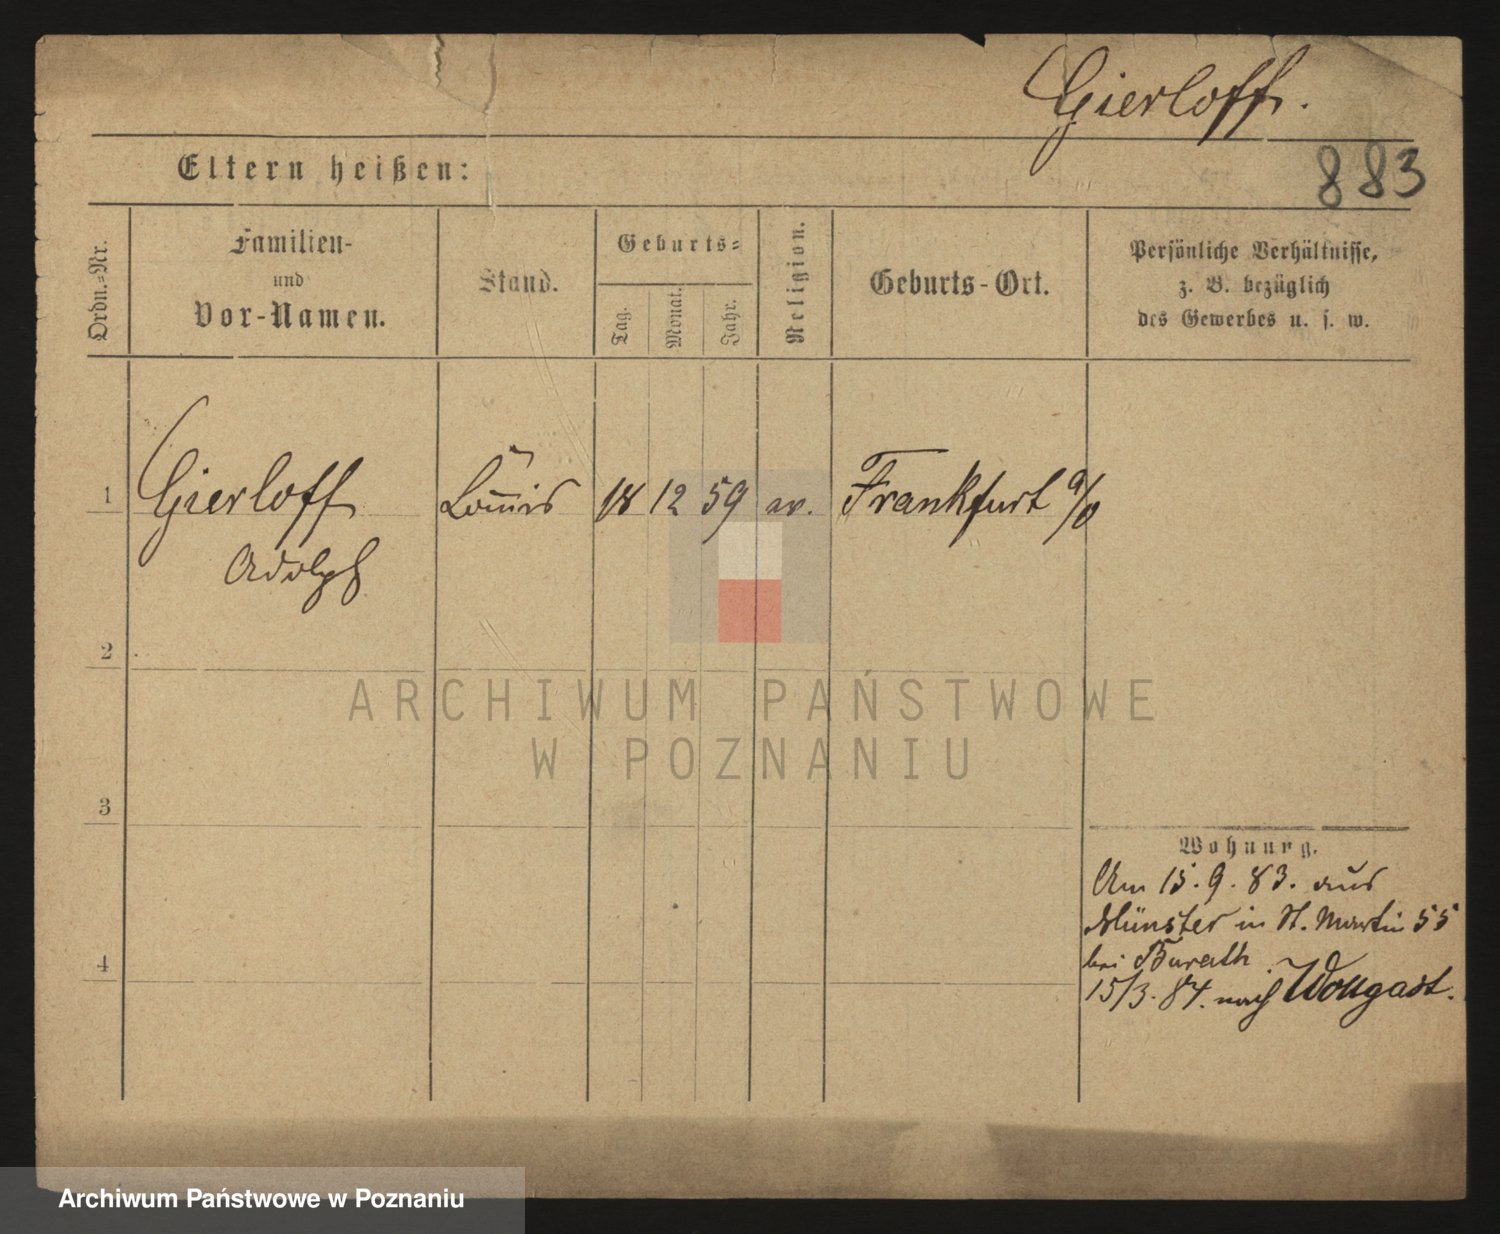 Gierloff.
883
Eltern heißen:
Ordn.-Nr.
Familien-
und
Vor-Namen.
Stand.
Geburts-
Tag.
Monat.
Jahr.
Religion.
Geburts-Ort.
Persönliche Verhältnisse,
z. B. bezüglich
des Gewerbes u. s. w.
1
Gierloff
Adolph
Commis
18
12
59
ev.
Frankfurt a/O
2
3
4
Wohnung.
Am 15.9.83. aus
Münster in St. Martin 55
bei Burath
15/3.84. nach Wollgast.
ARCHIWUM PAŃSTWOWE
W POZNANIU
Archiwum Państwowe w Poznaniu